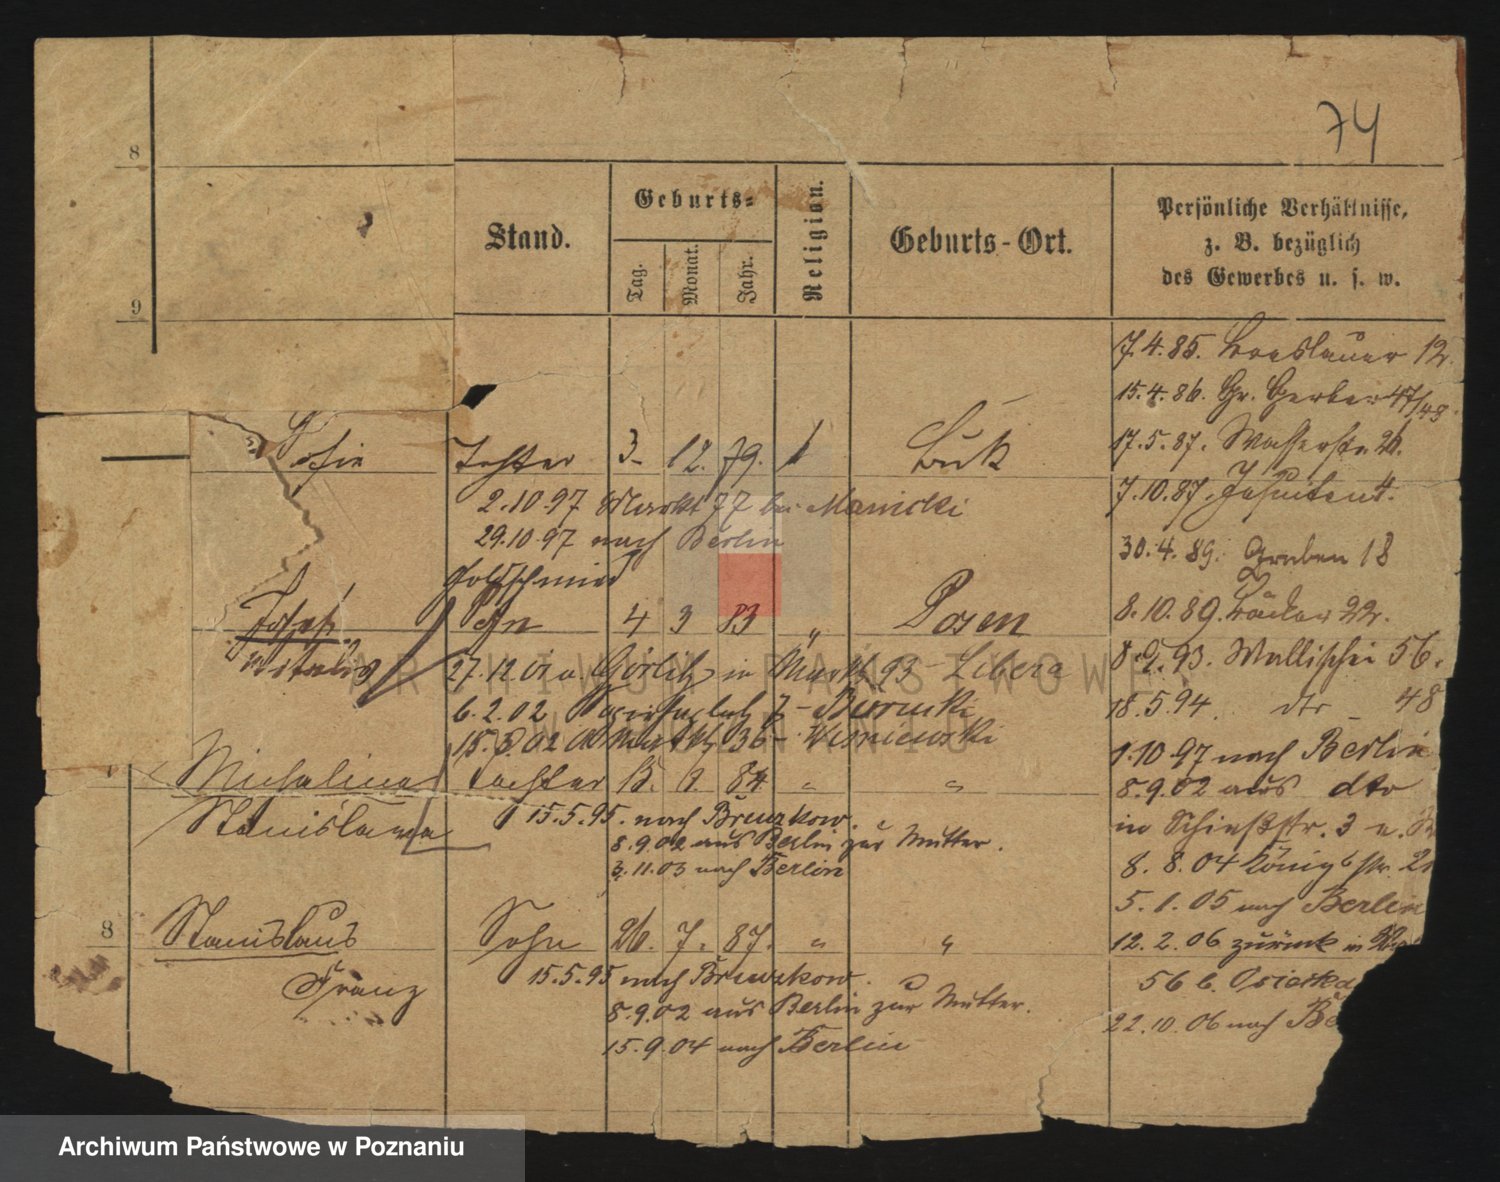 74
8
9
Stand.
Geburts-
Tag.
Monat.
Jahr.
Religion.
Geburts-Ort.
Persönliche Verhältnisse,
z. B. bezüglich
des Gewerbes u. s. w.
7.4.85. Breslauer 12.
15.4.86. Gr. Gerber 47/48
17.5.87. Wasserstr. 26.
7.10.87. Jesuiten 4.
30.4.89. Graben 18
8.10.89. Bäcker 22.
8.9.93. Wallischei 56.
18.5.94. dto 48
1.10 97 nach Berlin
8.9.02 aus dto
in Schießstr. 3
8.8.04 Königsstr.
5.1.05 nach Berlin
12.2.06 zurück in
56 b.
22.10.06 nach
Tochter 3 12. 79. Buk
2.10.97 Markt 77 bei
29.10.97 nach Berlin
Goldschmied
Josef Sohn 4 3 83 " Posen
27.12.01 a. Görlitz in Markt 93 Libera
6.2.02
02 Markt 36 - Wisniewski
Michalina Tochter 84 " "
Stanislawa
15.5.95. nach
8.9.02 aus Berlin zur Mutter.
3.11.03 nach Berlin
8 Stanislaus Sohn 26. 7. 87. " "
Franz
15.5.95 nach
8.9.02 aus Berlin zur Mutter.
15.9.04 nach Berlin
ARCHIWUM PAŃSTWOWE
W POZNANIU
Archiwum Państwowe w Poznaniu